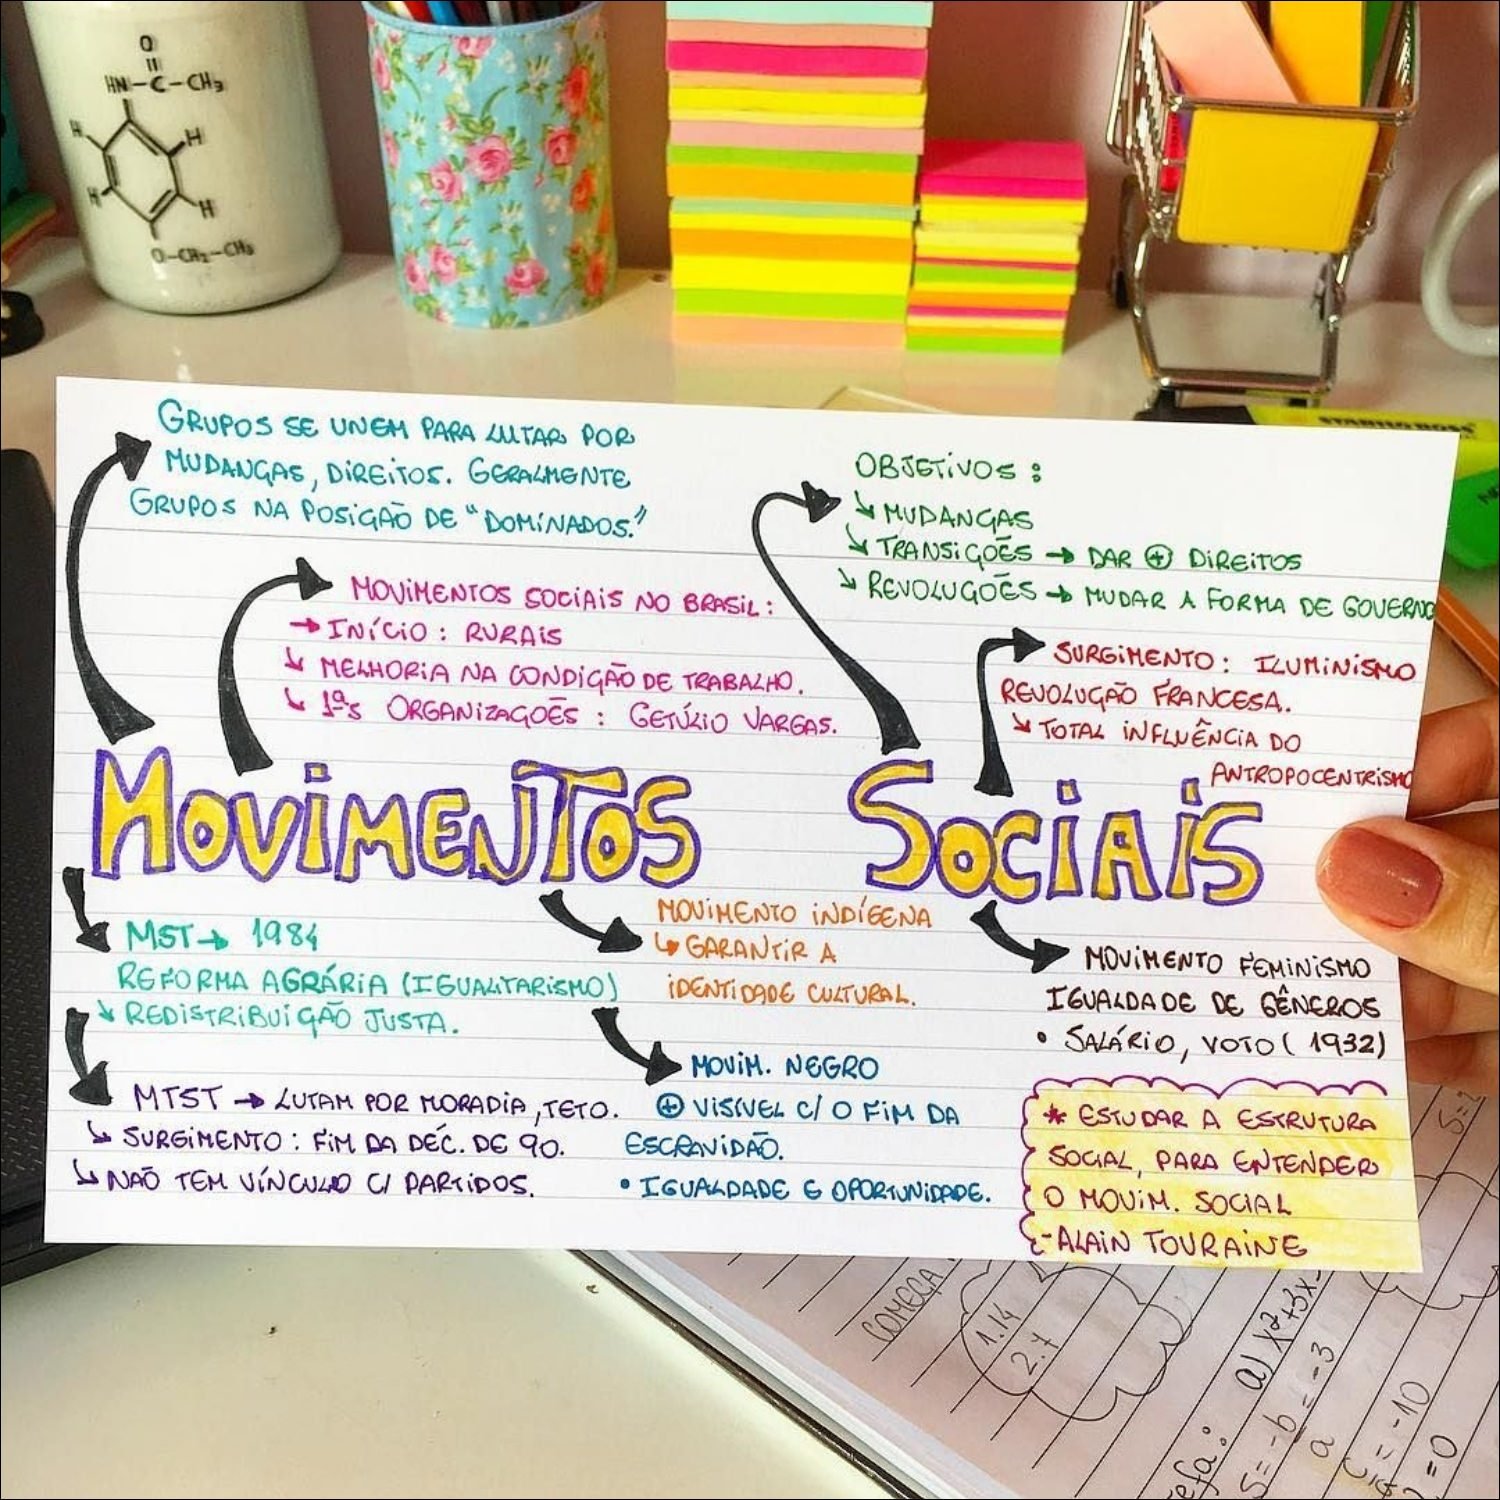 O
HN-C-CH3
H
H
H
H
O-CH2-CH3
STABILO BOSS
GRUPOS SE UNEM PARA LUTAR POR
MUDANÇAS, DIREITOS. GERALMENTE
GRUPOS NA POSIÇÃO DE "DOMINADOS."
MOVIMENTOS SOCIAIS NO BRASIL:
→ INÍCIO: RURAIS
↳ MELHORIA NA CONDIÇÃO DE TRABALHO.
↳ 1ªs ORGANIZAÇÕES: GETÚLIO VARGAS.
OBJETIVOS:
↳ MUDANÇAS
↳ TRANSIÇÕES → DAR ⊕ DIREITOS
↳ REVOLUÇÕES → MUDAR A FORMA DE GOVERNO
SURGIMENTO: ILUMINISMO
REVOLUÇÃO FRANCESA.
↳ TOTAL INFLUÊNCIA DO
ANTROPOCENTRISMO
MOVIMENTOS SOCIAIS
MST → 1984
REFORMA AGRÁRIA (IGUALITARISMO)
↳ REDISTRIBUIÇÃO JUSTA.
MTST → LUTAM POR MORADIA, TETO.
↳ SURGIMENTO: FIM DA DÉC. DE 90.
↳ NÃO TEM VÍNCULO C/ PARTIDOS.
MOVIMENTO INDÍGENA
↳ GARANTIR A
IDENTIDADE CULTURAL.
MOVIM. NEGRO
⊕ VISÍVEL C/ O FIM DA
ESCRAVIDÃO.
• IGUALDADE E OPORTUNIDADE.
MOVIMENTO FEMINISMO
IGUALDADE DE GÊNEROS
• SALÁRIO, VOTO (1932)
* ESTUDAR A ESTRUTURA
SOCIAL, PARA ENTENDER
O MOVIM. SOCIAL
-ALAIN TOURAINE
COMEÇA
1.14
2.7
a) x²+3x-
S=-b = -3
a